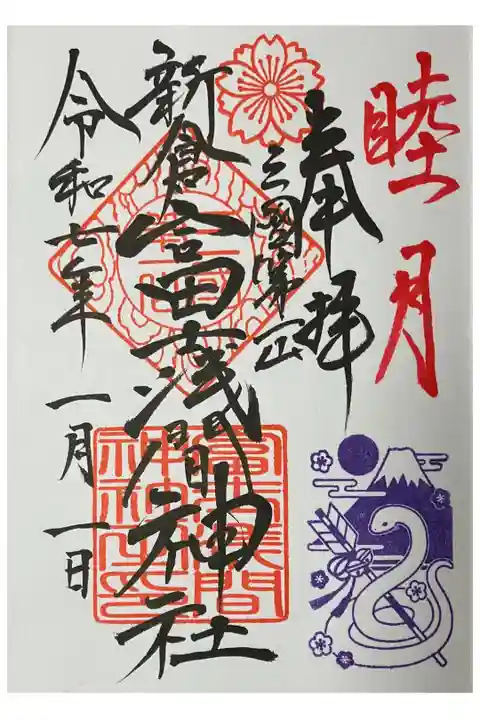 睦月
奉拝
三國第一山
新倉富士浅間神社
令和七年
一月一日